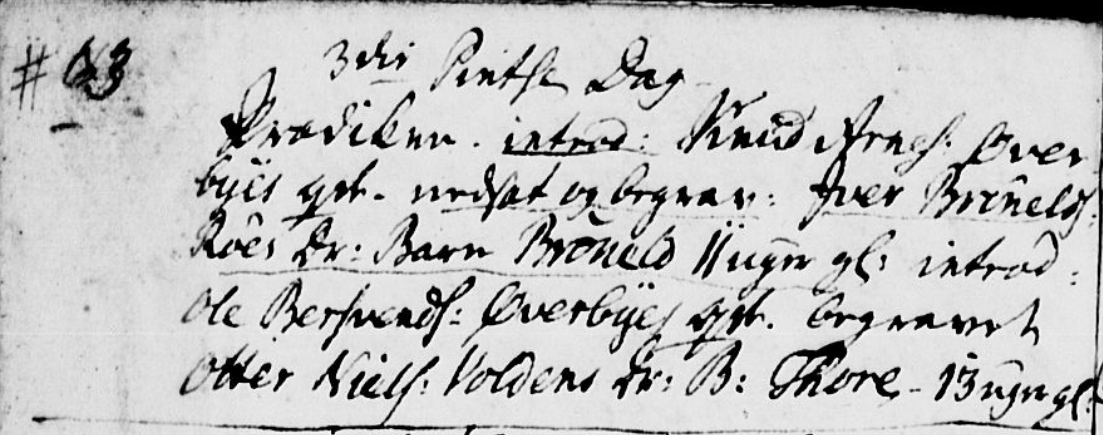 # 63
3die Pintse Dag
Prædiken. introd: Knud Arnes: Over
byes qvt. nedsat og begrav: Iver Brönelds:
Röes Dr: Barn Bröneld 11 uger gl: introd:
Ole Berhvends: Overbyes qvt. begravet
Otter Niels: Voldens Dr: B: Thore - 13 uger gl: